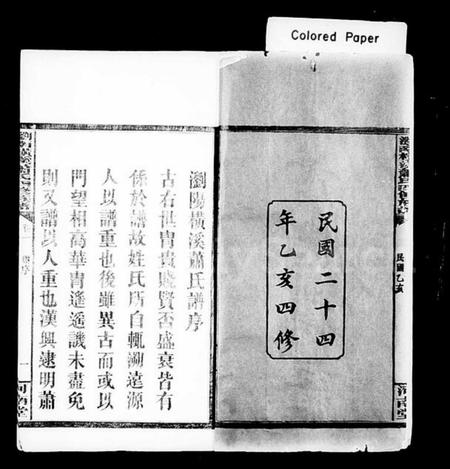 Colored Paper
民國二十四
年乙亥四修
民國乙亥
瀏陽橫溪蕭氏譜序
古右世冑貴賤賢否盛衰皆有
係於譜故姓氏所自輒溯遠源
人以譜重也後雖異古而或以
門望相高華冑遙遙譏未盡免
則又譜以人重也漢興逮明蕭